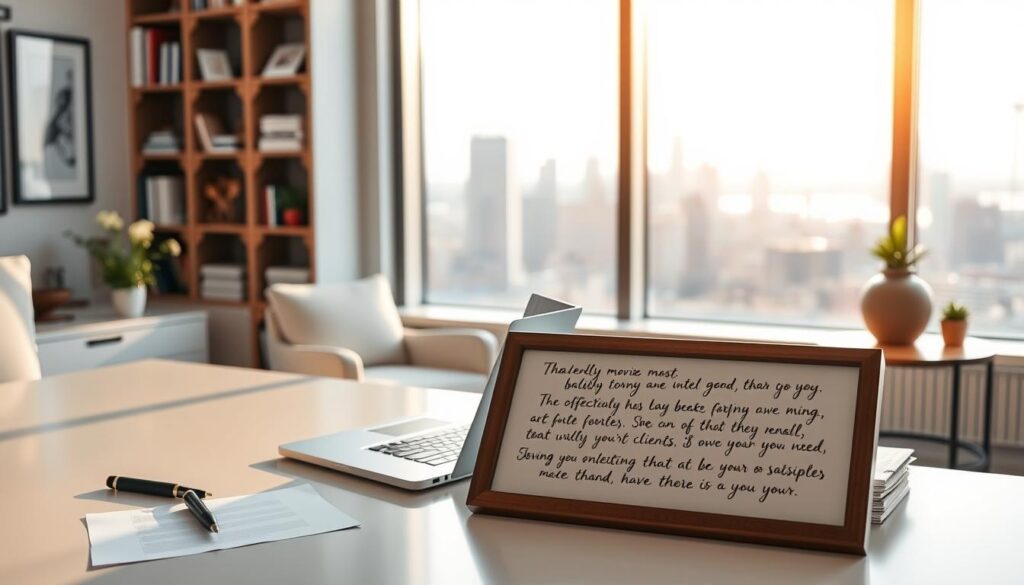 Thaledly movie most.
balidy torny ane intel good, thar go yoy.
The offecticuly hos lay beeke forfny awe ming,
art forte foorles. Soe can of that they renoll,
toat willy you't clients, is owe year you need,
Soving you onlesting that at be your o salsiples
mate thand, have there is a you your.